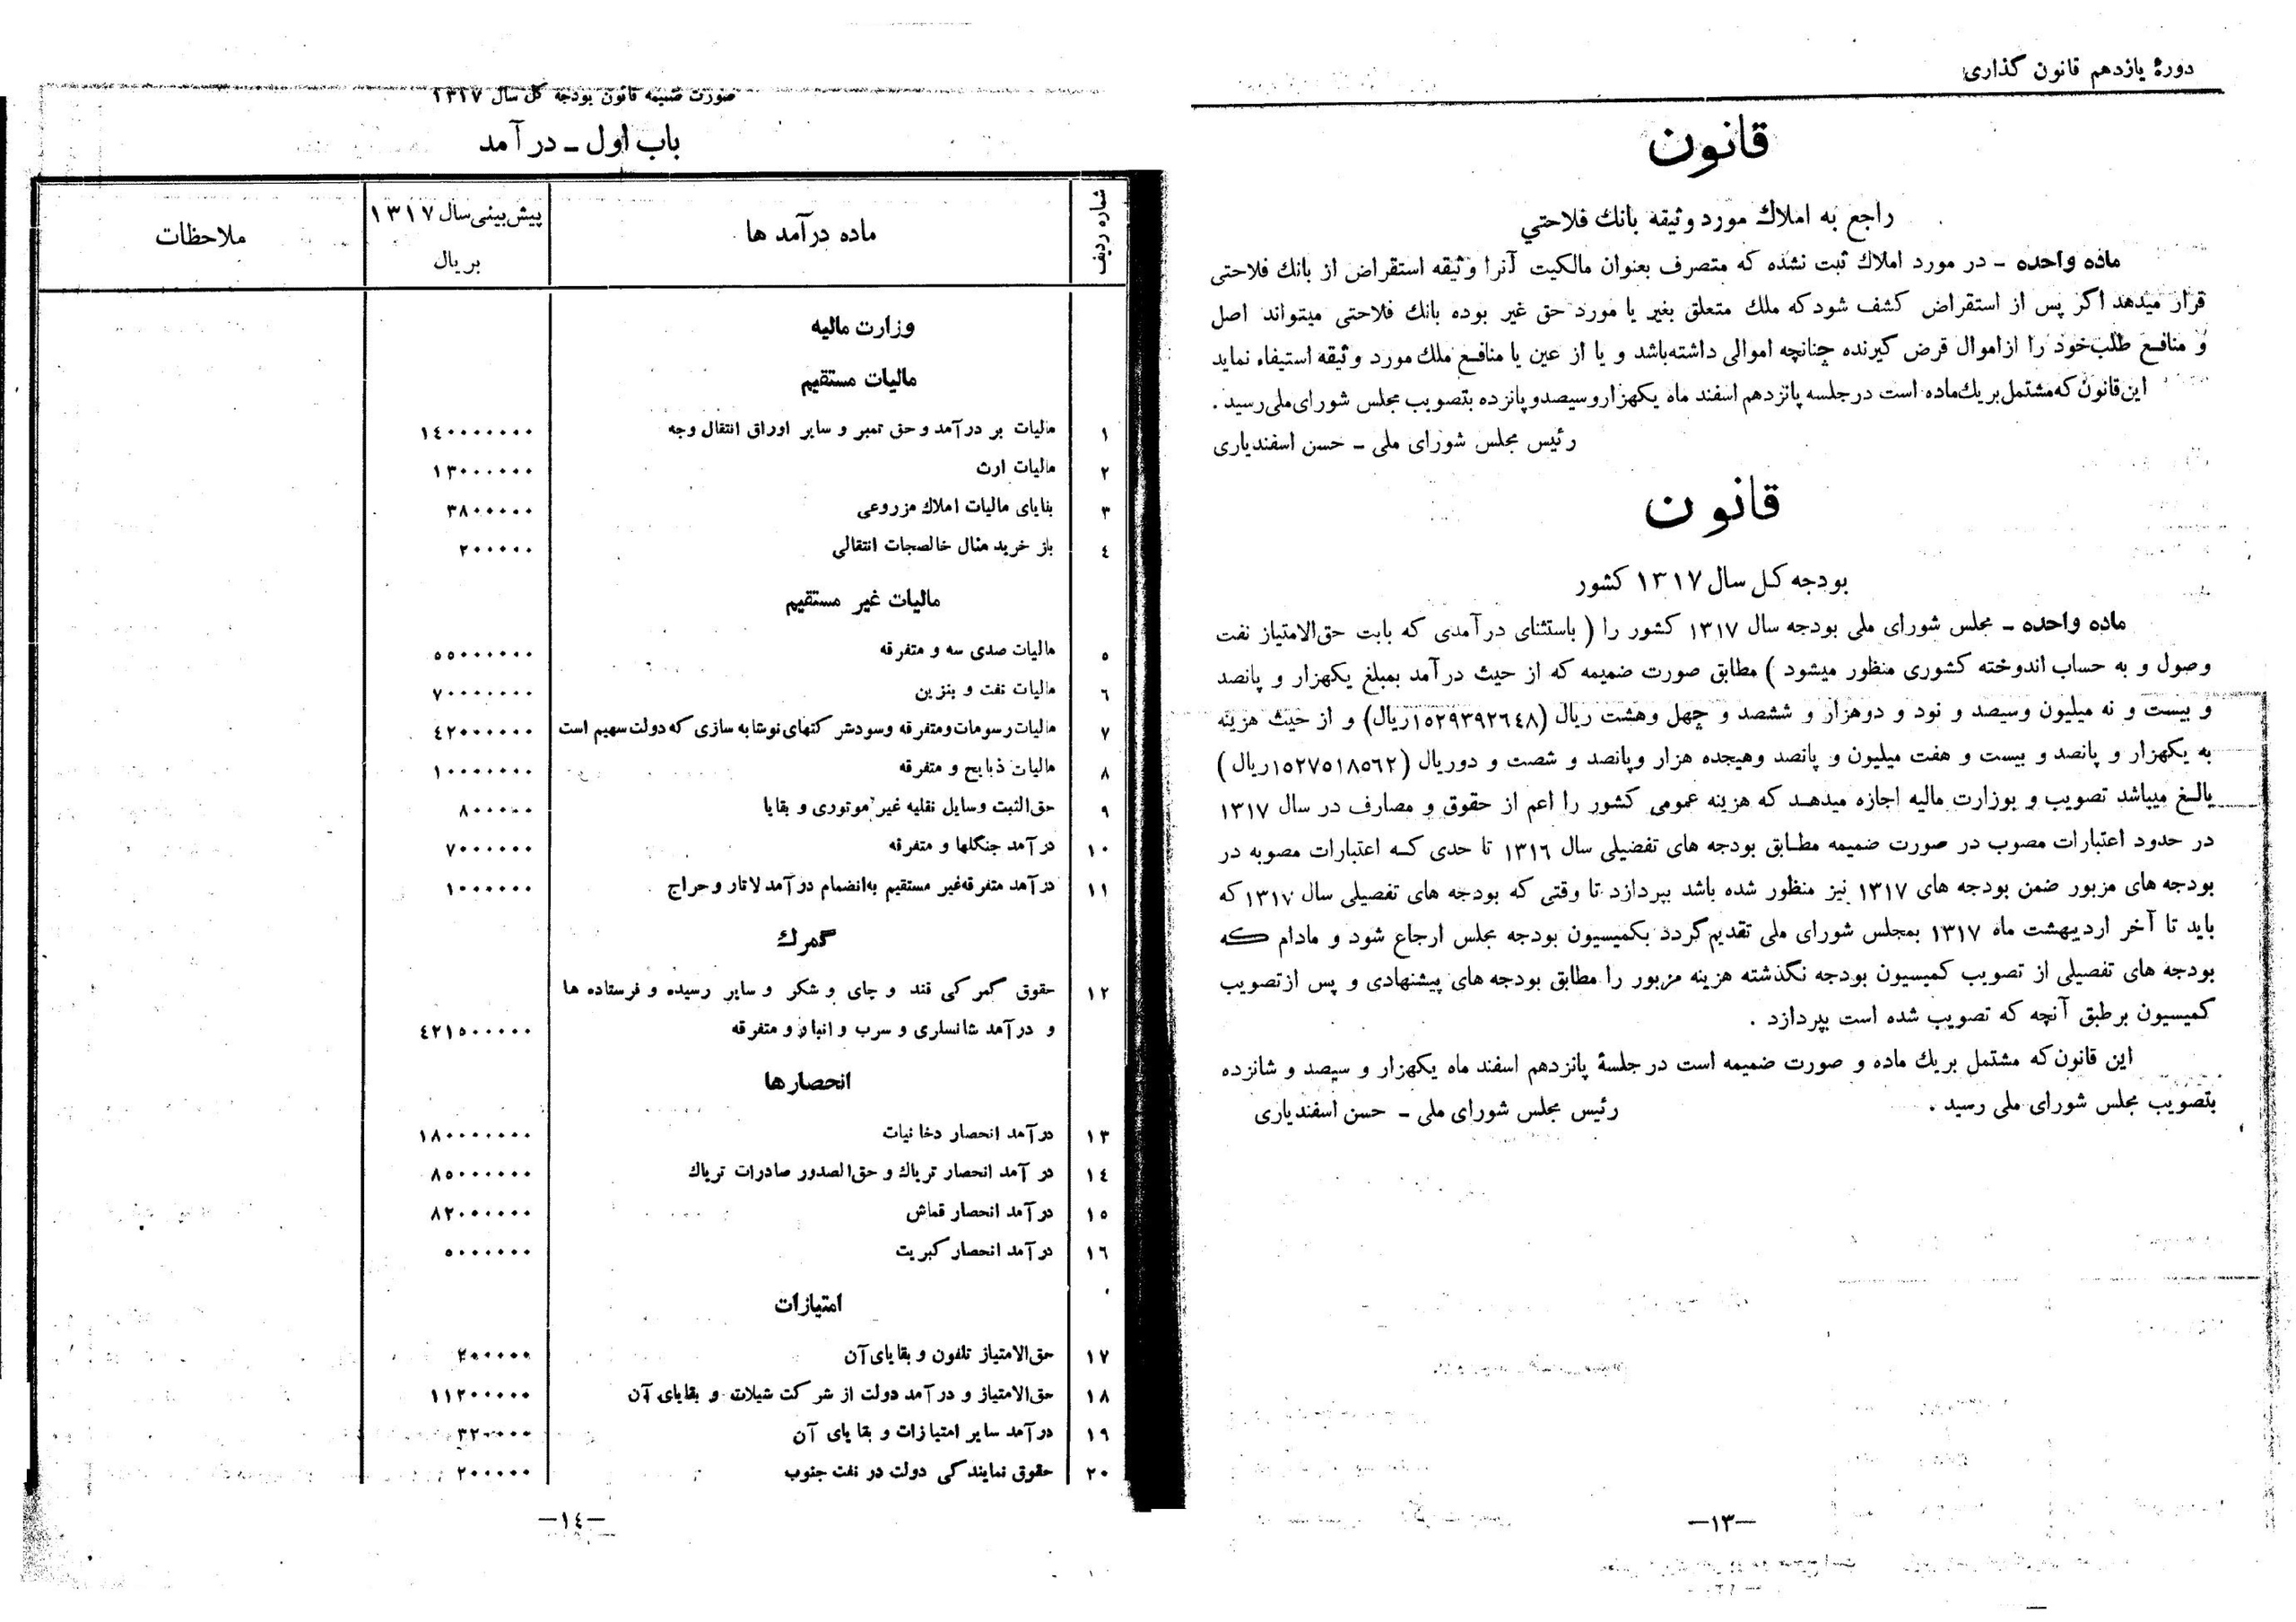 دورهٔ یازدهم قانون گذاری
قانون
راجع به املاك مورد وثیقه بانك فلاحتي
ماده واحده ـ در مورد املاك ثبت نشده که متصرف بعنوان مالکیت آنرا وثیقه استقراض از بانك فلاحتی
قرار میدهد اگر پس از استقراض کشف شود که ملك متعلق بغیر یا مورد حق غیر بوده بانك فلاحتی میتواند اصل
و منافع طلب خود را از اموال قرض گیرنده چنانچه اموالی داشته باشد و یا از عین یا منافع ملك مورد وثیقه استیفاء نماید
این قانون که مشتمل بر یك ماده است در جلسه پانزدهم اسفند ماه یکهزار و سیصد و پانزده بتصویب مجلس شورای ملی رسید .
رئیس مجلس شورای ملی ـ حسن اسفندیاری
قانون
بودجه کل سال ۱۳۱۷ کشور
ماده واحده ـ مجلس شورای ملی بودجه سال ۱۳۱۷ کشور را ( باستثنای درآمدی که بابت حق‌الامتیاز نفت
وصول و به حساب اندوخته کشوری منظور میشود ) مطابق صورت ضمیمه که از حیث درآمد بمبلغ یکهزار و پانصد
و بیست و نه میلیون وسیصد و نود و دوهزار و ششصد و چهل وهشت ریال (۱۵۲۹۳۹۲٦٤۸ریال) و از حیث هزینه
به یکهزار و پانصد و بیست و هفت میلیون و پانصد وهیجده هزار وپانصد و شصت و دوریال (۱۵۲۷۵۱۸۵٦۲ریال )
بالغ میباشد تصویب و بوزارت مالیه اجازه میدهد که هزینه عمومی کشور را اعم از حقوق و مصارف در سال ۱۳۱۷
در حدود اعتبارات مصوب در صورت ضمیمه مطابق بودجه های تفضیلی سال ۱۳۱٦ تا حدی که اعتبارات مصوبه در
بودجه های مزبور ضمن بودجه های ۱۳۱۷ نیز منظور شده باشد بپردازد تا وقتی که بودجه های تفصیلی سال ۱۳۱۷ که
باید تا آخر اردیبهشت ماه ۱۳۱۷ بمجلس شورای ملی تقدیم گردد بکمیسیون بودجه مجلس ارجاع شود و مادام که
بودجه های تفصیلی از تصویب کمیسیون بودجه نگذشته هزینه مزبور را مطابق بودجه های پیشنهادی و پس از تصویب
کمیسیون برطبق آنچه که تصویب شده است بپردازد .
این قانون که مشتمل بریك ماده و صورت ضمیمه است در جلسهٔ پانزدهم اسفند ماه یکهزار و سیصد و شانزده
بتصویب مجلس شورای ملی رسید . رئیس مجلس شورای ملی ـ حسن اسفندیاری
—۱۳—
صورت ضمیمه قانون بودجه کل سال ۱۳۱۷
باب اول ـ درآمد
شماره ردیف ماده درآمد ها پیش‌بینی سال ۱۳۱۷ بریال ملاحظات
وزارت مالیه
مالیات مستقیم
۱ مالیات بر درآمد و حق تمبر و سایر اوراق انتقال وجه ۱٤۰۰۰۰۰۰۰
۲ مالیات ارث ۱۳۰۰۰۰۰
۳ بقایای مالیات املاك مزروعی ۳۸۰۰۰۰۰
٤ باز خرید منال خالصجات انتقالی ۲۰۰۰۰۰
مالیات غیر مستقیم
۵ مالیات صدی سه و متفرقه ۵۵۰۰۰۰۰۰
٦ مالیات نفت و بنزین ۷۰۰۰۰۰۰۰
۷ مالیات رسومات ومتفرقه وسود شرکتهای نوشابه سازی که دولت سهیم است ٤۲۰۰۰۰۰۰
۸ مالیات ذبایح و متفرقه ۱۰۰۰۰۰۰۰
۹ حق‌الثبت وسایل نقلیه غیر موتوری و بقایا ۸۰۰۰۰۰
۱۰ درآمد جنگلها و متفرقه ۷۰۰۰۰۰۰
۱۱ درآمد متفرقه غیر مستقیم به‌انضمام درآمد لاتار و حراج ۱۰۰۰۰۰۰
گمرك
۱۲ حقوق گمرکی قند و چای و شکر و سایر رسیده و فرستاده ها
و درآمد شانسلری و سرب و انبار و متفرقه ٤۲۱۵۰۰۰۰۰
انحصارها
۱۳ درآمد انحصار دخانیات ۱۸۰۰۰۰۰۰۰
۱٤ درآمد انحصار تریاك و حق‌الصدور صادرات تریاك ۸۵۰۰۰۰۰۰
۱۵ درآمد انحصار قماش ۸۲۰۰۰۰۰۰
۱٦ درآمد انحصار کبریت ۵۰۰۰۰۰۰
امتیازات
۱۷ حق‌الامتیاز تلفون و بقایای آن ۲۰۰۰۰۰
۱۸ حق‌الامتیاز و درآمد دولت از شرکت شیلات و بقایای آن ۱۱۲۰۰۰۰۰
۱۹ درآمد سایر امتیازات و بقایای آن ۳۲۰۰۰۰
۲۰ حقوق نمایندگی دولت در نفت جنوب ۲۰۰۰۰۰
—۱٤—